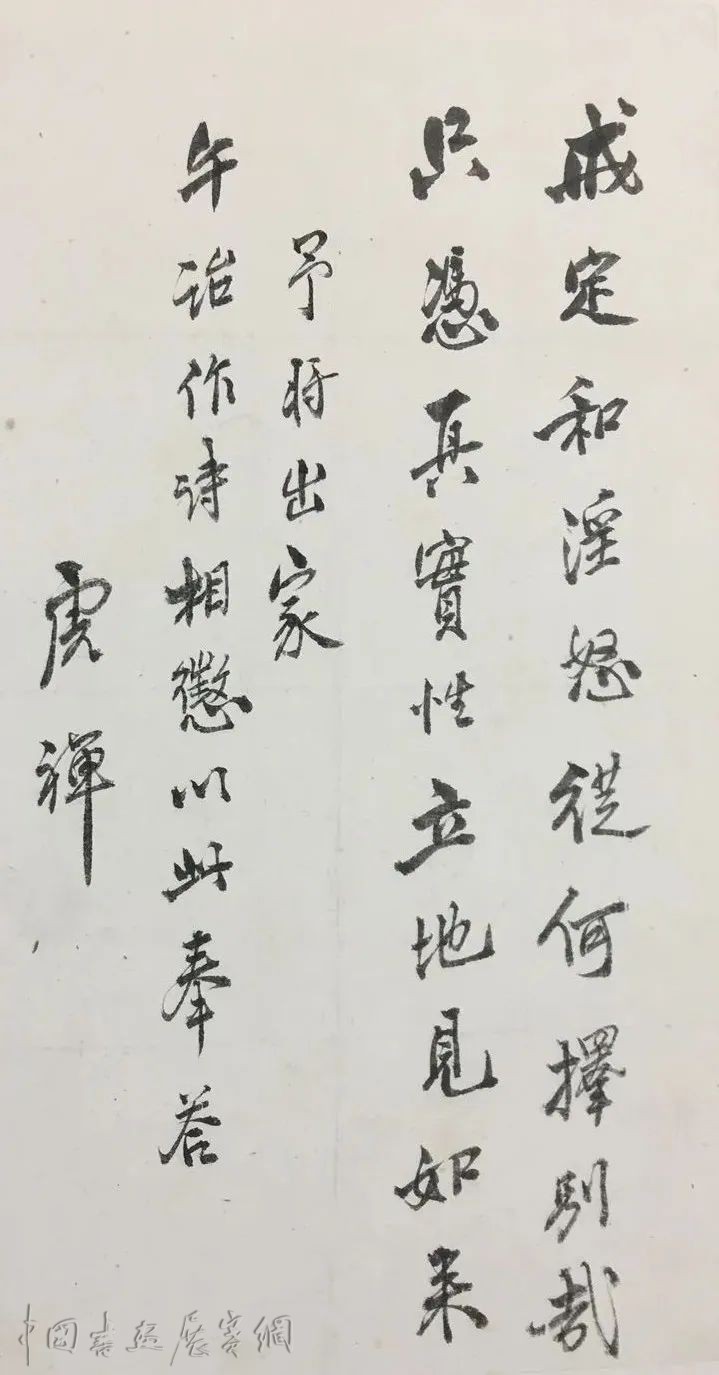 戒定和淫怒從何擇別哉
只憑真實性立地見如来
予将出家
午詒作詩相懲以此奉荅
虎禅
中國書畫展賽網